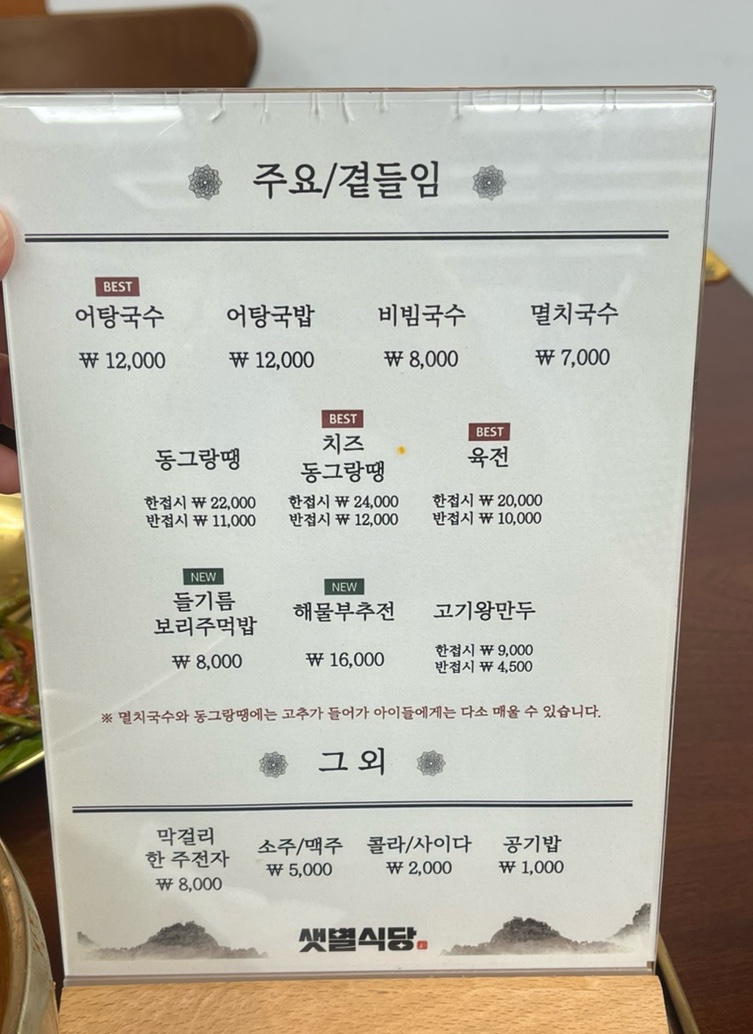 주요/곁들임
BEST
어탕국수 어탕국밥 비빔국수 멸치국수
₩ 12,000 ₩ 12,000 ₩ 8,000 ₩ 7,000
BEST BEST
동그랑땡 치즈 육전
동그랑땡
한접시 ₩ 22,000 한접시 ₩ 24,000 한접시 ₩ 20,000
반접시 ₩ 11,000 반접시 ₩ 12,000 반접시 ₩ 10,000
NEW NEW
들기름 해물부추전 고기왕만두
보리주먹밥
₩ 8,000 ₩ 16,000 한접시 ₩ 9,000
반접시 ₩ 4,500
※ 멸치국수와 동그랑땡에는 고추가 들어가 아이들에게는 다소 매울 수 있습니다.
그 외
막걸리 소주/맥주 콜라/사이다 공기밥
한 주전자 ₩ 5,000 ₩ 2,000 ₩ 1,000
₩ 8,000
샛별식당